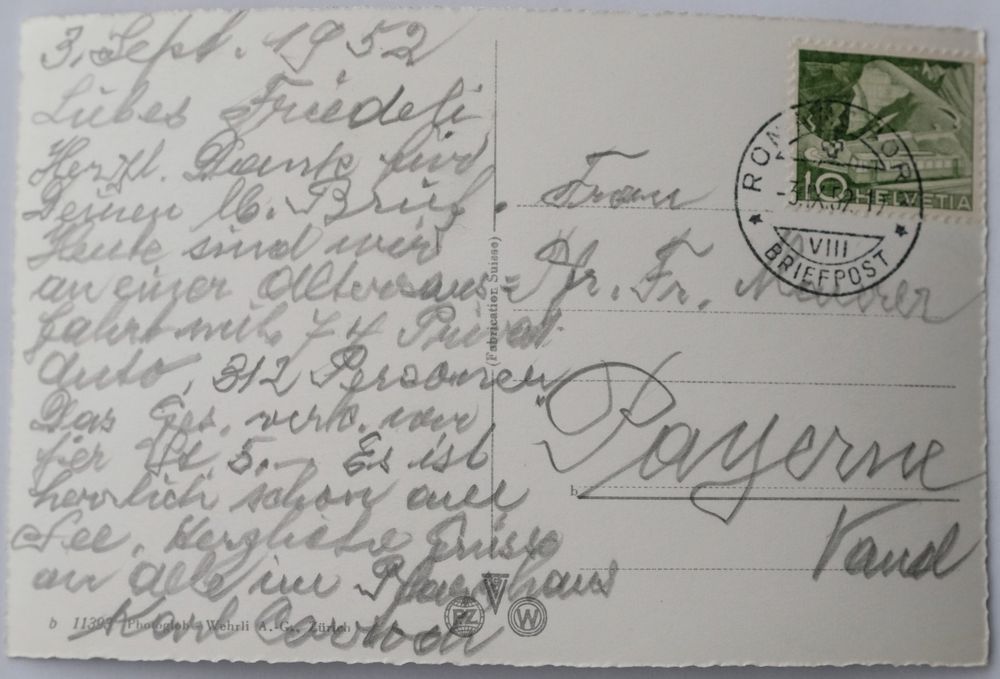 3. Sept. 1952
Liebes Friedeli
Herzl. Dank für
Deinen lb. Brief.
Heute sind wir
an einer Altersaus=
fahrt mit 74 Privat
Auto, 312 Personen
Das Ges. verk. von
hier St. 5.– Es ist
herrlich schön am
See. Herzliche Grüsse
an alle im Pfarrhaus
Karl
b 11393 Photoglob-Wehrli A.-G., Zürich
(Fabrication Suisse)
PZ
W
10 HELVETIA
-3.IX.52.-17
VIII
BRIEFPOST
Frau
Pfr. Fr.
Payerne
b
Vaud